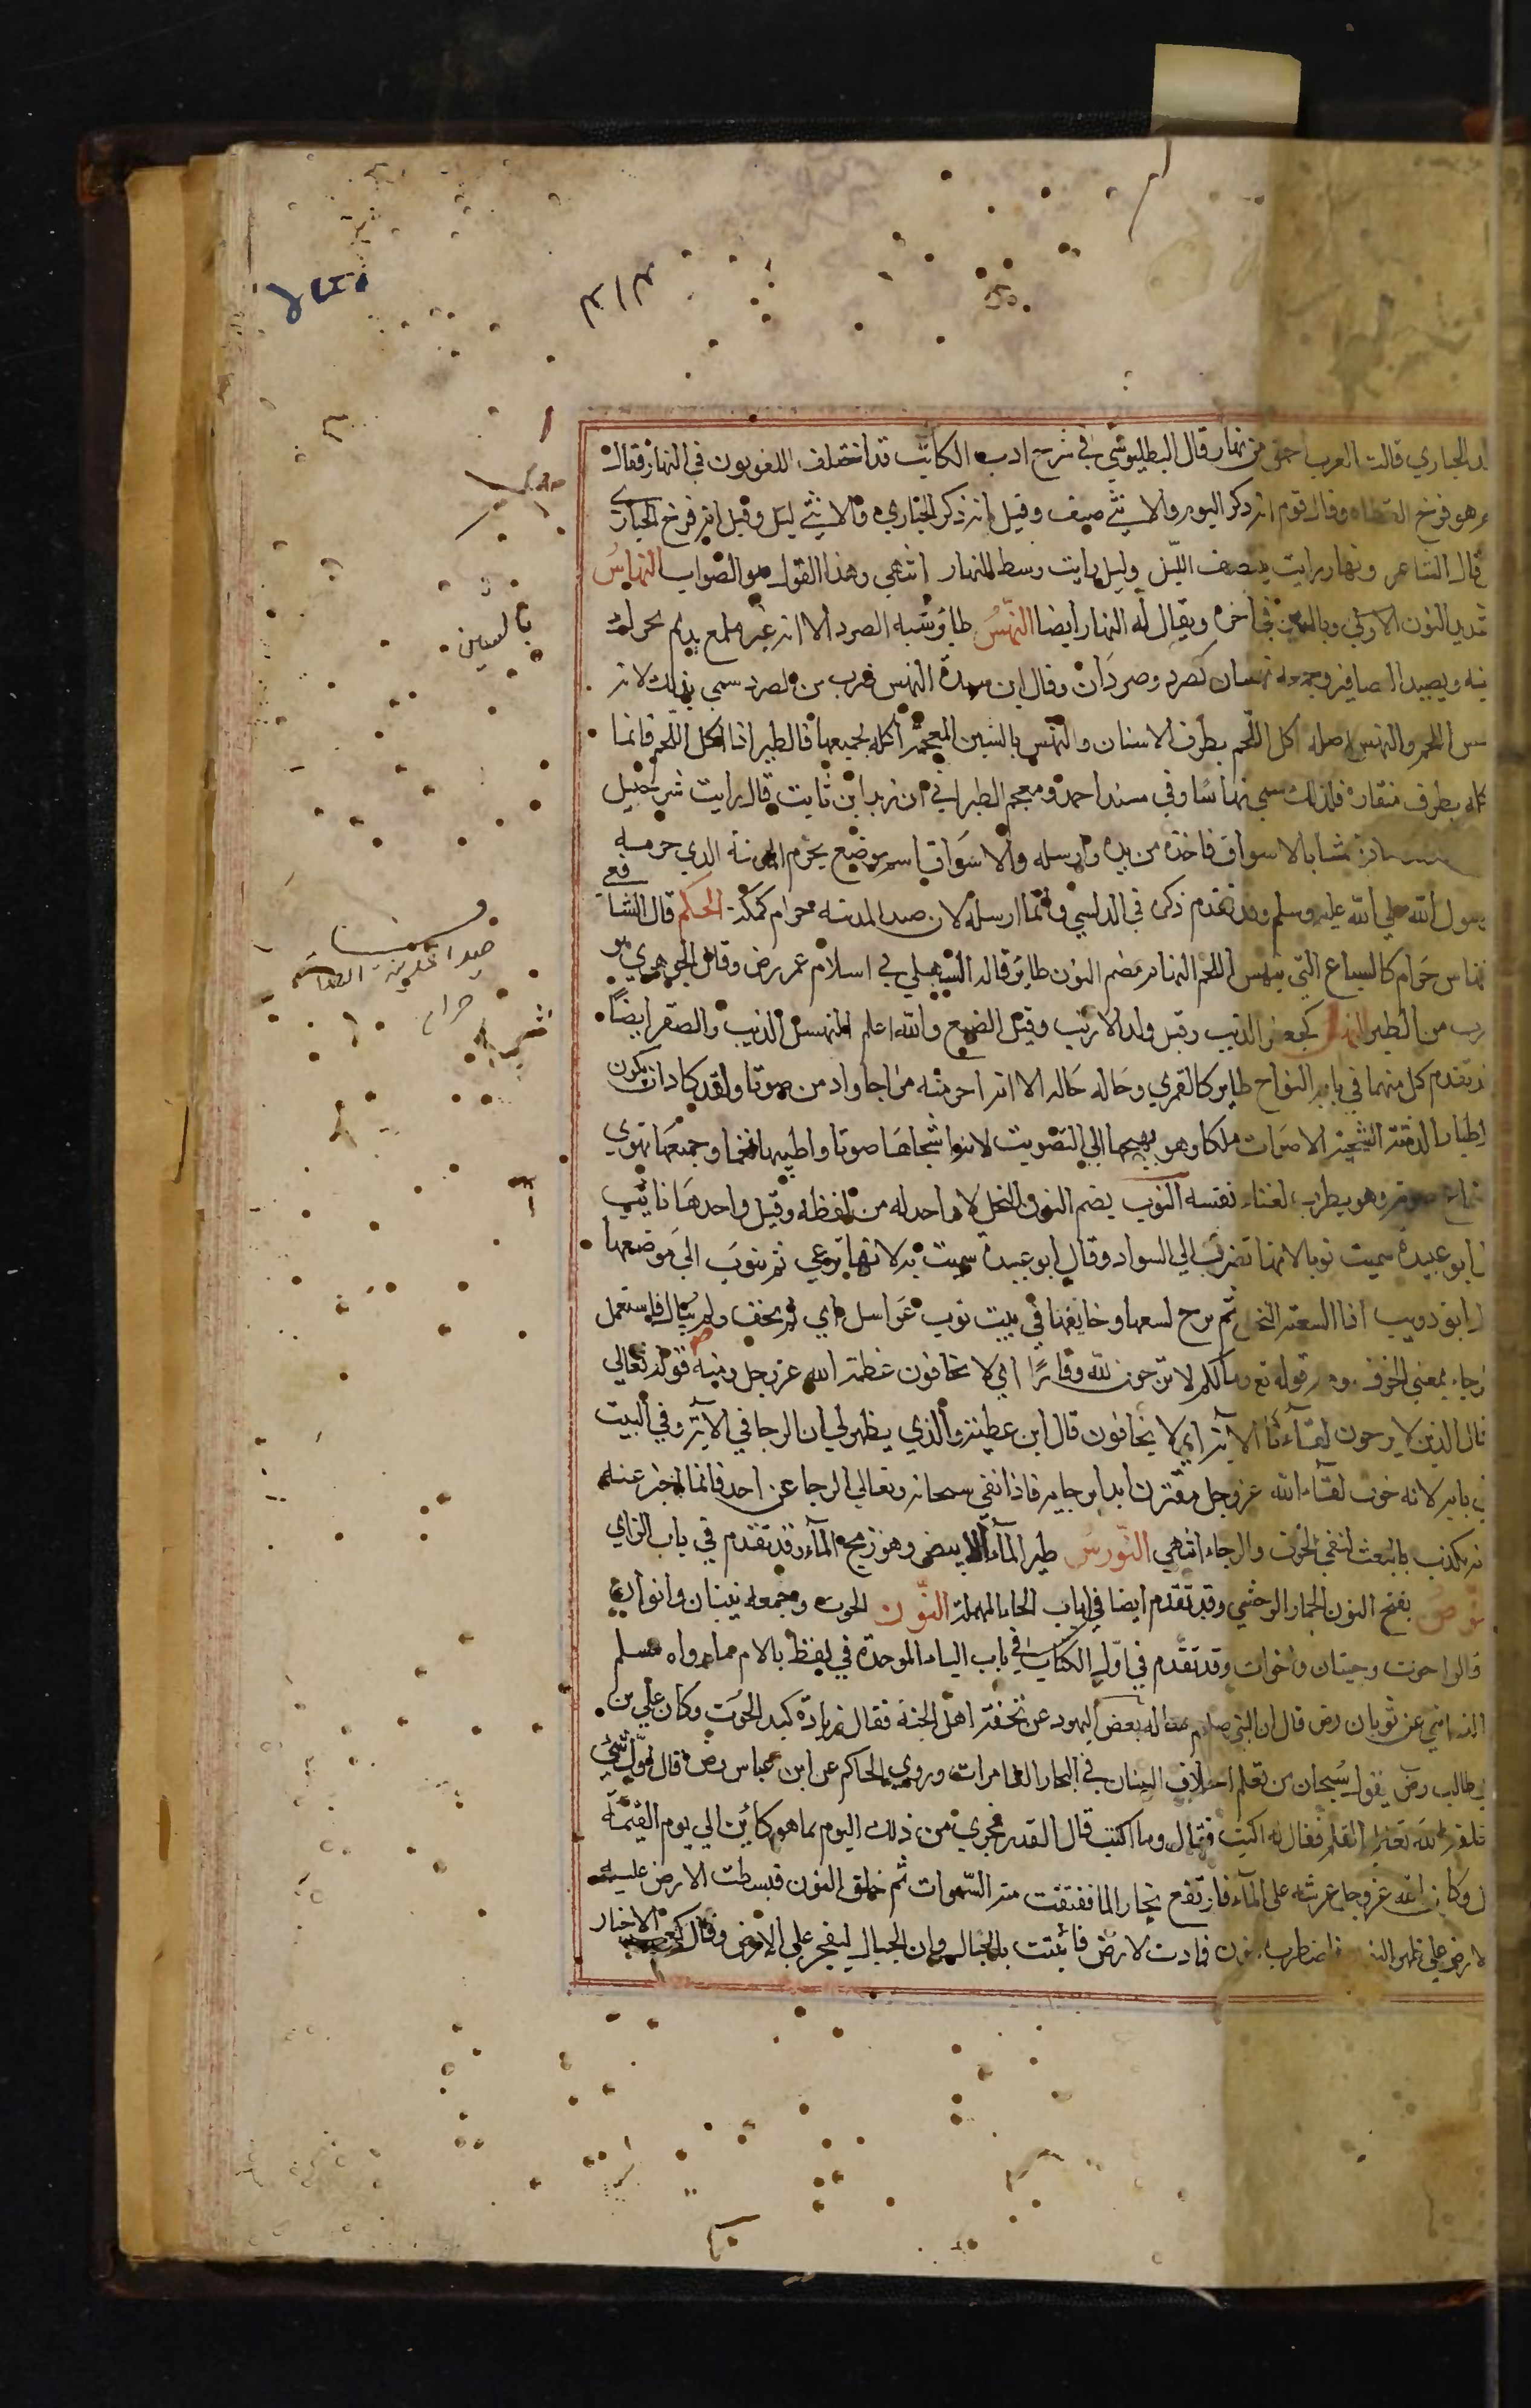 ولد الحباري قالت العرب احمق من نهار قال البطليوسي في شرح ادب الكاتب قد اختلف اللغويون في النهار فقال
هو فرخ القطاه وقال قوم انه ذكر البوم والانثي صيف وقيل انه ذكر الحباري والانثي ليل وقيل انه فرخ الحباري
قال الشاعر ونهار رايت منتصف الليل وليل رايت وسط النهار انتهي وهذا القول هو الصواب النهاس
بتشديد النون الاولي وبالسين في اخره ويقال له النهار ايضا النهس طاير شبه الصرد الا انه غير ملمع يديم تحريك
ذنبه ويصيد العصافير وجمعه نهسان كصرد وصردان وقال ابن سيدة النهس ضرب من الصرد سمي بذلك لانه
ينهس اللحم والنهس اصله اكل اللحم بطرف الاسنان والنهش بالشين المعجمة اكله بجميعها فالطير اذا اكل اللحم فانما
ياكله بطرف منقاره فلذلك سمي نهاسا وفي مسند احمد ومعجم الطبراني ان زيد ابن ثابت قال رايت شرحبيل
نهسا بالاسواق فاخذه من يده وارسله والاسواق اسم موضع بحرم المدينة الذي حرمه
رسول الله صلي الله عليه وسلم وقد تقدم ذكره في الدبسي وانما ارسله لان صيد المدينه حرام كمكة الحكم قال الشافعي
النهاس حرام كالسباع التي ينهس اللحم النهام بضم النون طاير قاله السهيلي في اسلام عمر رض وقال الجوهري هو
ضرب من الطير النهسر كجعفر الذيب وقيل ولد الارنب وقيل الضبع والله اعلم النهسل الذيب والصقر ايضا
قد تقدم كل منهما في بابه النواح طاير كالقمري وحاله حاله الا انه احر منه مزاجا وادمن صوتا ولقد كاد ان يكون
للاطيار الدمثة الشجية الاصوات ملكا وهو يهيجها الي التصويت لانه اشجاها صوتا واطيبها نغما وجميعها تهوي
استماع صوته وهو يطرب لغناء نفسه النوب بضم النون النحل لا واحد له من لفظه وقيل واحدها نائب
قال ابو عبيدة سميت نوبا لانها تضرب الي السواد وقال ابو عبيدة سميت به لانها ترعي ثم تنوب الي موضعها
قال ابو ذويب اذا لسعته النحل لم يرج لسعها وخالفها في بيت نوب عواسل اي لم يخف ولم يبال فاستعمل
الرجاء بمعني الخوف ومنه قوله تع ومالكم لا ترجون لله وقارا اي لا تخافون عظمة الله عز وجل ومنه قوله تعالي
قال الذين لا يرجون لقاءنا الاية اي لا يخافون قال ابن عطية والذي يظهر لي ان الرجا في الاية وفي البيت
في بابه لانه خوف لقاء الله عز وجل مقترن ابدا برجايه فاذا نفي سبحانه وتعالي الرجا عن احد فانما اخبر عنه
انه يكذب بالبعث لنفي الخوف والرجاء انتهي النورس طير الماء الابيض وهو زمج الماء وقد تقدم في باب الزاي
النوص بفتح النون الحمار الوحشي وقد تقدم ايضا في باب الحاء المهملة النون الحوت وجمعه نينان وانوان
قالوا حوت وحيتان واحوات وقد تقدم في اول الكتاب في باب الباء الموحدة في لفظ بالام مما رواه مسلم
والنسائي عن ثوبان رض قال ان النبي صلعم ساله بعض اليهود عن تحفة اهل الجنة فقال زيادة كبد الحوت وكان علي بن
ابي طالب رض يقول سبحان من تعلم اختلاف النينان في البحار الغامرات وروي الحاكم عن ابن عباس رض قال اول شي
خلقه الله تعالي القلم فقال له اكتب فقال وما اكتب قال القدر فجري من ذلك اليوم بما هو كائن الي يوم القيمة
قال وكان الله عز وجل عرشه علي الماء فارتفع بخار الما ففتقت منه السموات ثم خلق النون فبسطت الارض عليه
الارض علي ظهر النون فاضطرب النون فمادت الارض فاثبتت بالجبال وان الجبال ليفجر علي الارض وقال كعب الاخبار
بالسين
صيد المدينة
حرام